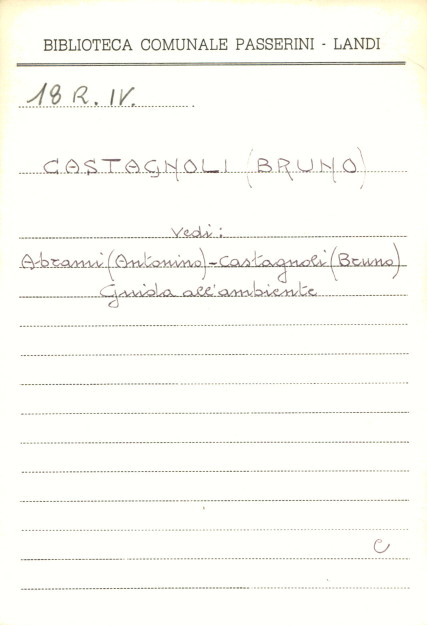 BIBLIOTECA COMUNALE PASSERINI - LANDI
18 R. IV.
CASTAGNOLI (BRUNO)
Vedi:
Abrami (Antonino) - Castagnoli (Bruno)
Guida all'ambiente
C